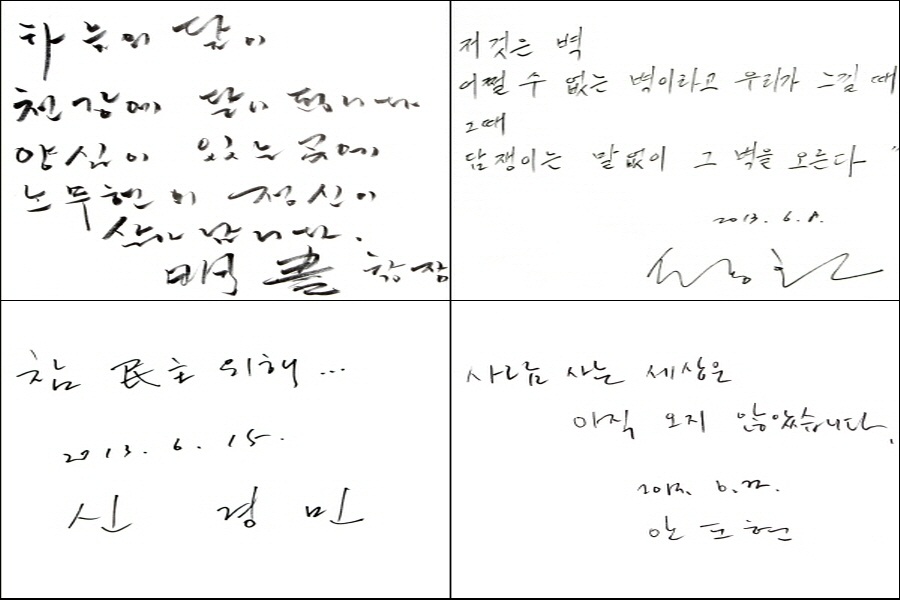 하늘의 달이
천강에 달이 됩니다
양심이 있는 곳에
노무현의 정신이
삽니다.
明盡 합장
저것은 벽
어쩔 수 없는 벽이라고 우리가 느낄 때
그때
담쟁이는 말없이 그 벽을 오른다"
2013. 6. 8.
참 民主 위해...
2013. 6. 15.
신 경 민
사람 사는 세상은
아직 오지 않았습니다.
2013. 6. 22.
안도현